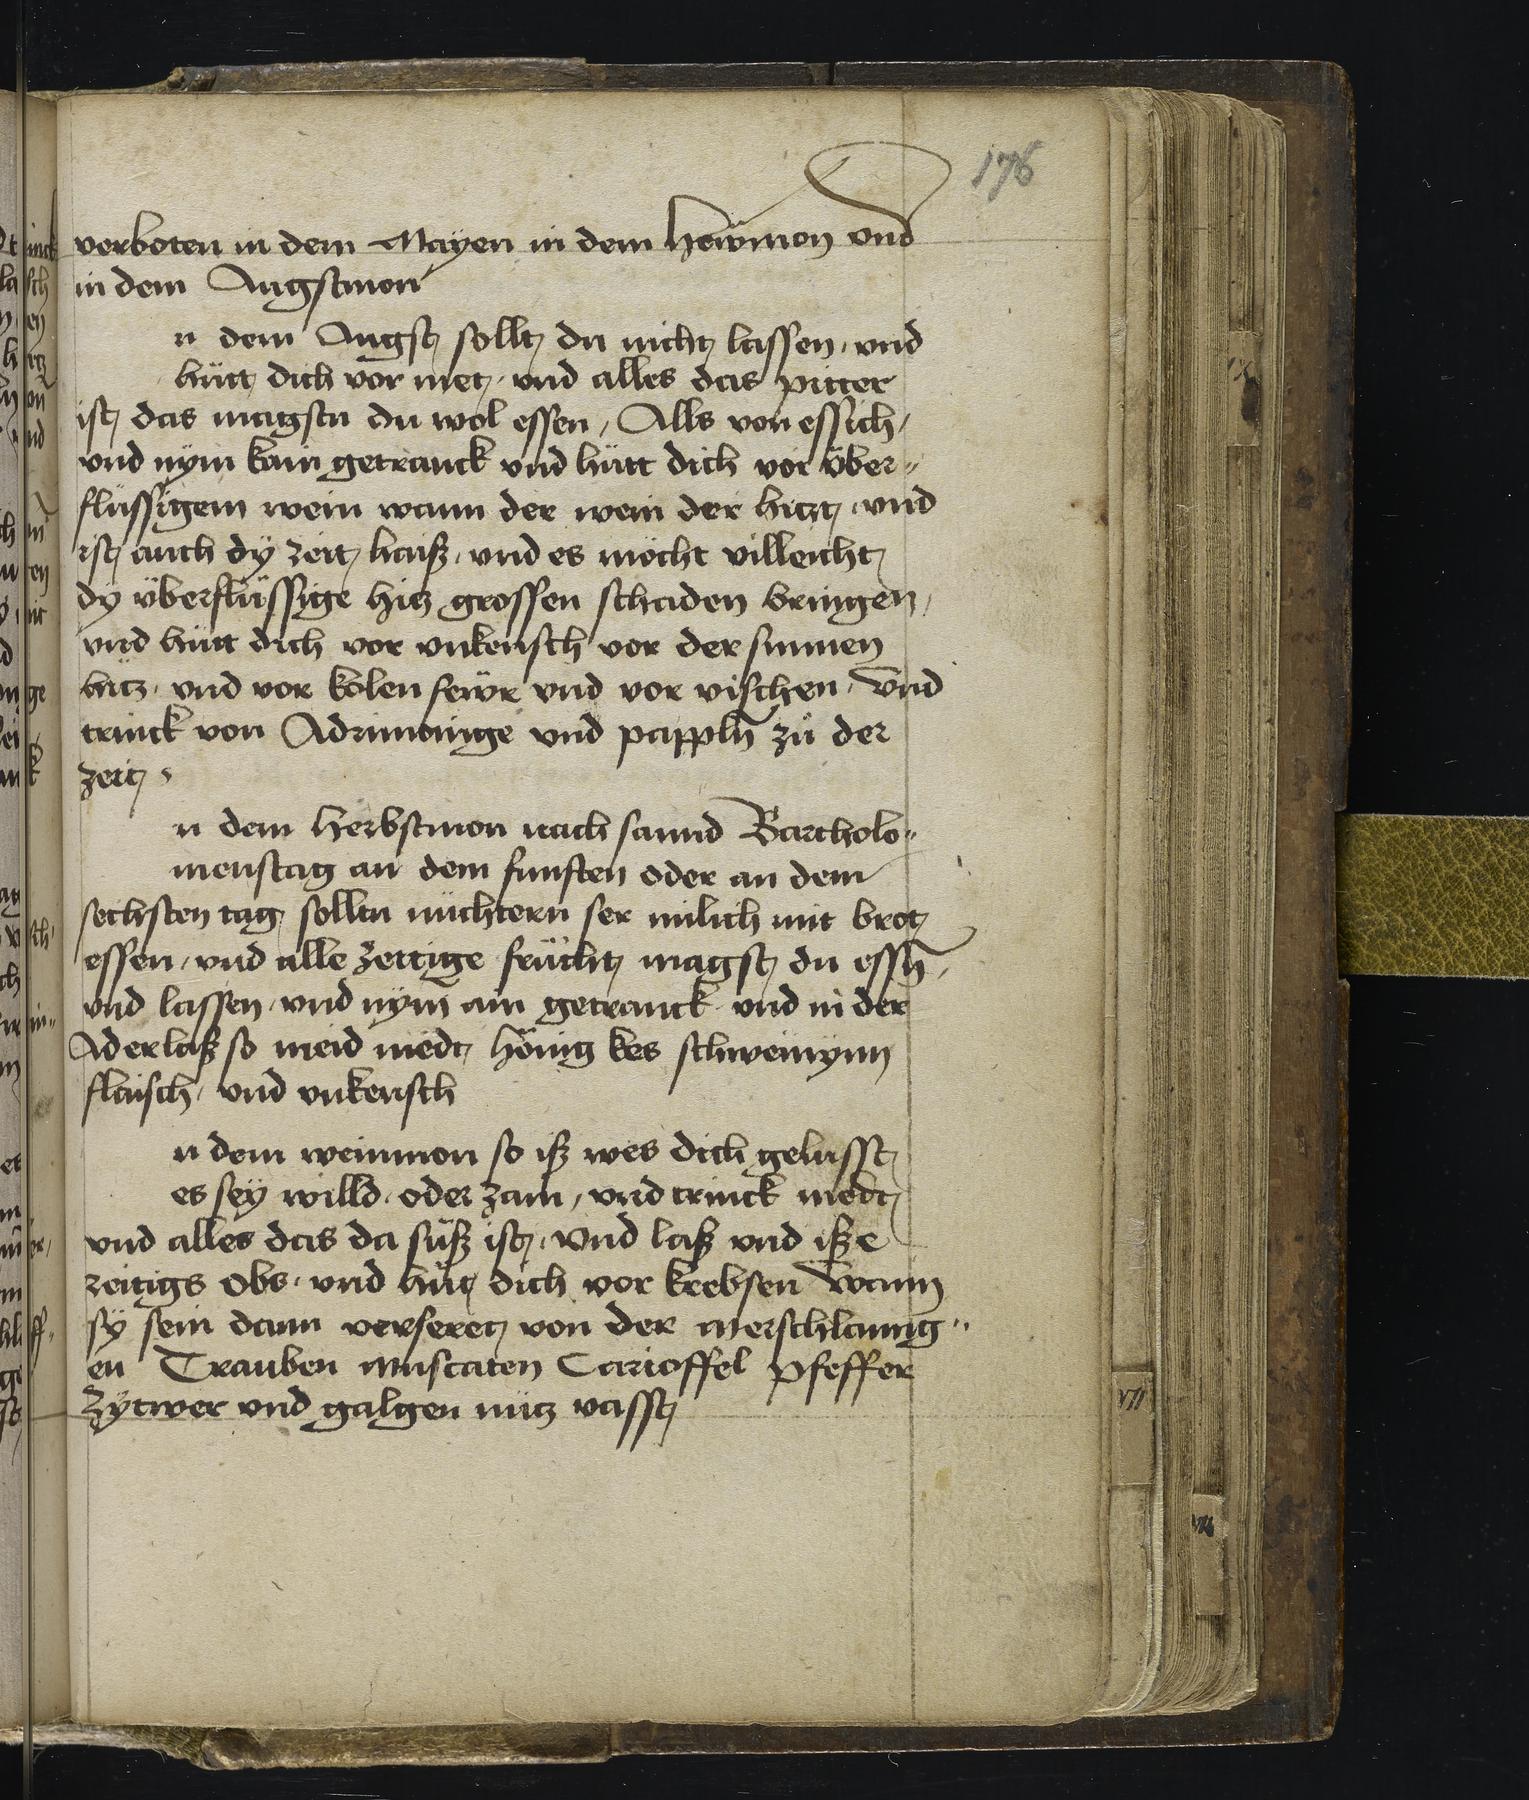 176
verboten in dem Mayen in dem Hewmon vnd
in dem Augstmon
n dem Augst sollt du nicht lassen, vnd
hütt dich vor met, vnd alles das pitter
ist das magstu du wol essen, Alls von essich,
vnd nym kain getranck vnd hütt dich vor über„
flüssigem wein wann der wein der hitzt, vnd
ist auch dÿ zeit haiß, vnd es möcht villeicht
dÿ überflüssige hitz grossen schaden bringen,
vnd hütt dich vor vnkeusch vor der sunnen
hitz, vnd vor kolen fewr vnd vor vischen, Vnd
trinck von Adrimonige vnd pappln̄ zů der
zeit
n dem Herbstmon nach sannd Bartholo„
meustag an dem funften oder an dem
sechsten tag, solltu nüchtern ser milich mit brot
essen, vnd alle zeitige frücht magst du essn̄,
vnd lassen, vnd nym ain getranck, vnd in der
Aderlaß so meid medt, hönig kes schweinynn
flaisch, vnd vnkeusch
n dem weinmon so iß wes dich gelusst
es seÿ willd, oder zam, vnd trinck medt
vnd alles das da süß ist, Vnd laß vnd iß
zeitigs obs, vnd hüt dich vor krebsen Wann
sÿ sein dann verseret von der merschlanng„
en Trauben Muscaten Carioffel Pfeffer
Zytwer vnd galgen nütz vasst
VII